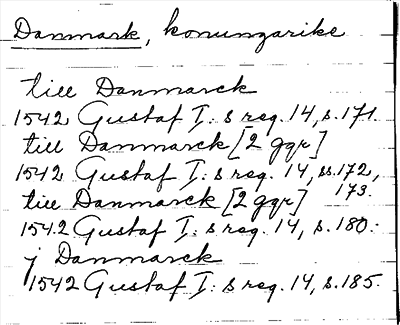 Danmark, konungarike
till Danmarck
1542 Gustaf I:s reg. 14, s. 171.
till Danmarck [2 ggr]
1542 Gustaf I:s reg. 14, ss. 172, 173.
till Danmarck [2 ggr]
1542 Gustaf I:s reg. 14, s. 180.
j Danmarck
1542 Gustaf I:s reg. 14, s. 185.